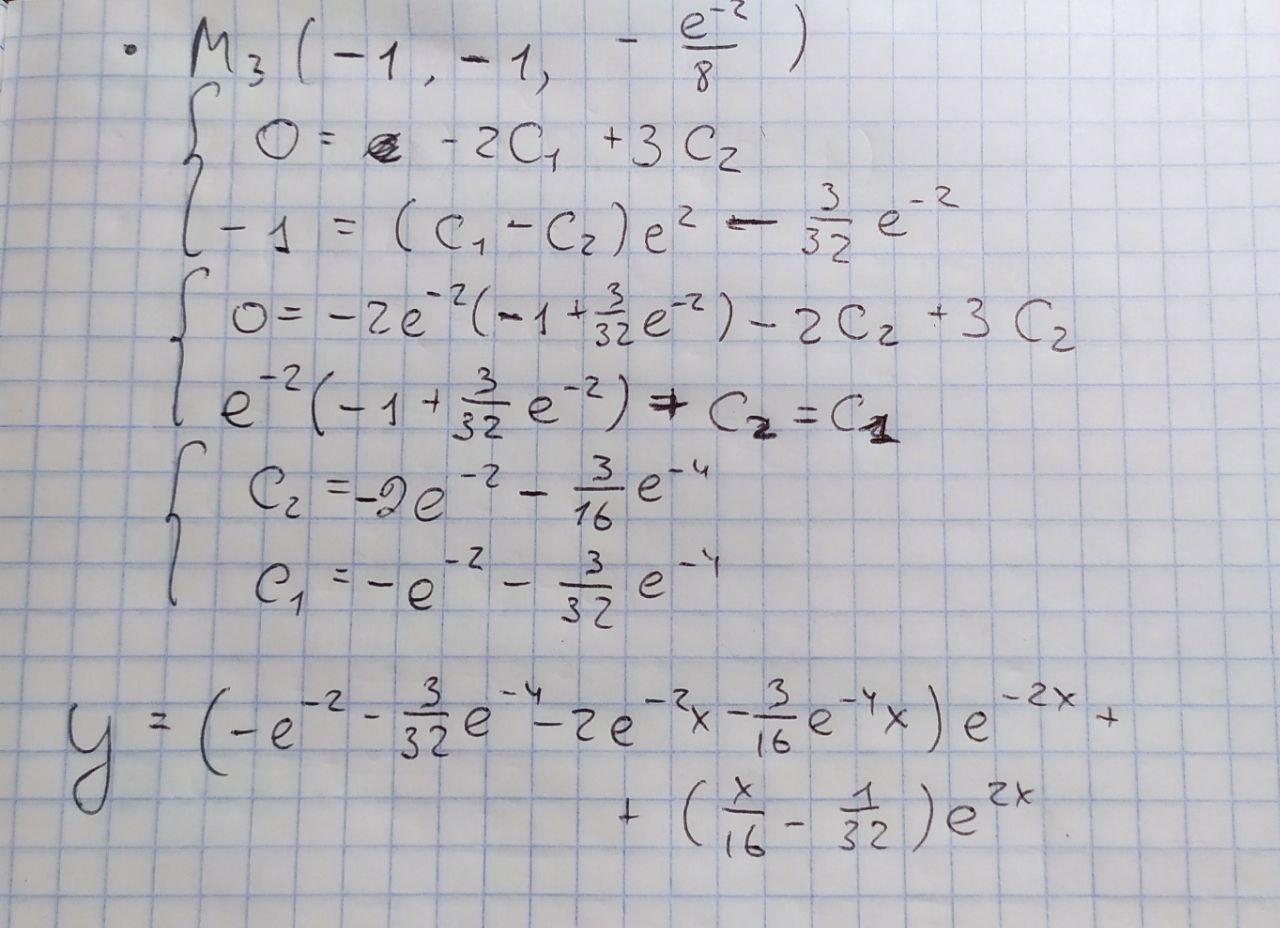 • M₃ (-1, -1, - e⁻²/8)
0 = -2C₁ + 3C₂
-1 = (C₁ - C₂)e² - 3/32 e⁻²
0 = -2e⁻²(-1 + 3/32 e⁻²) - 2C₂ + 3C₂
e⁻²(-1 + 3/32 e⁻²) + C₂ = C₁
C₂ = -2e⁻² - 3/16 e⁻⁴
C₁ = -e⁻² - 3/32 e⁻⁴
y = (-e⁻² - 3/32 e⁻⁴ - 2e⁻²x - 3/16 e⁻⁴x) e⁻²ˣ +
+ (x/16 - 1/32) e²ˣ